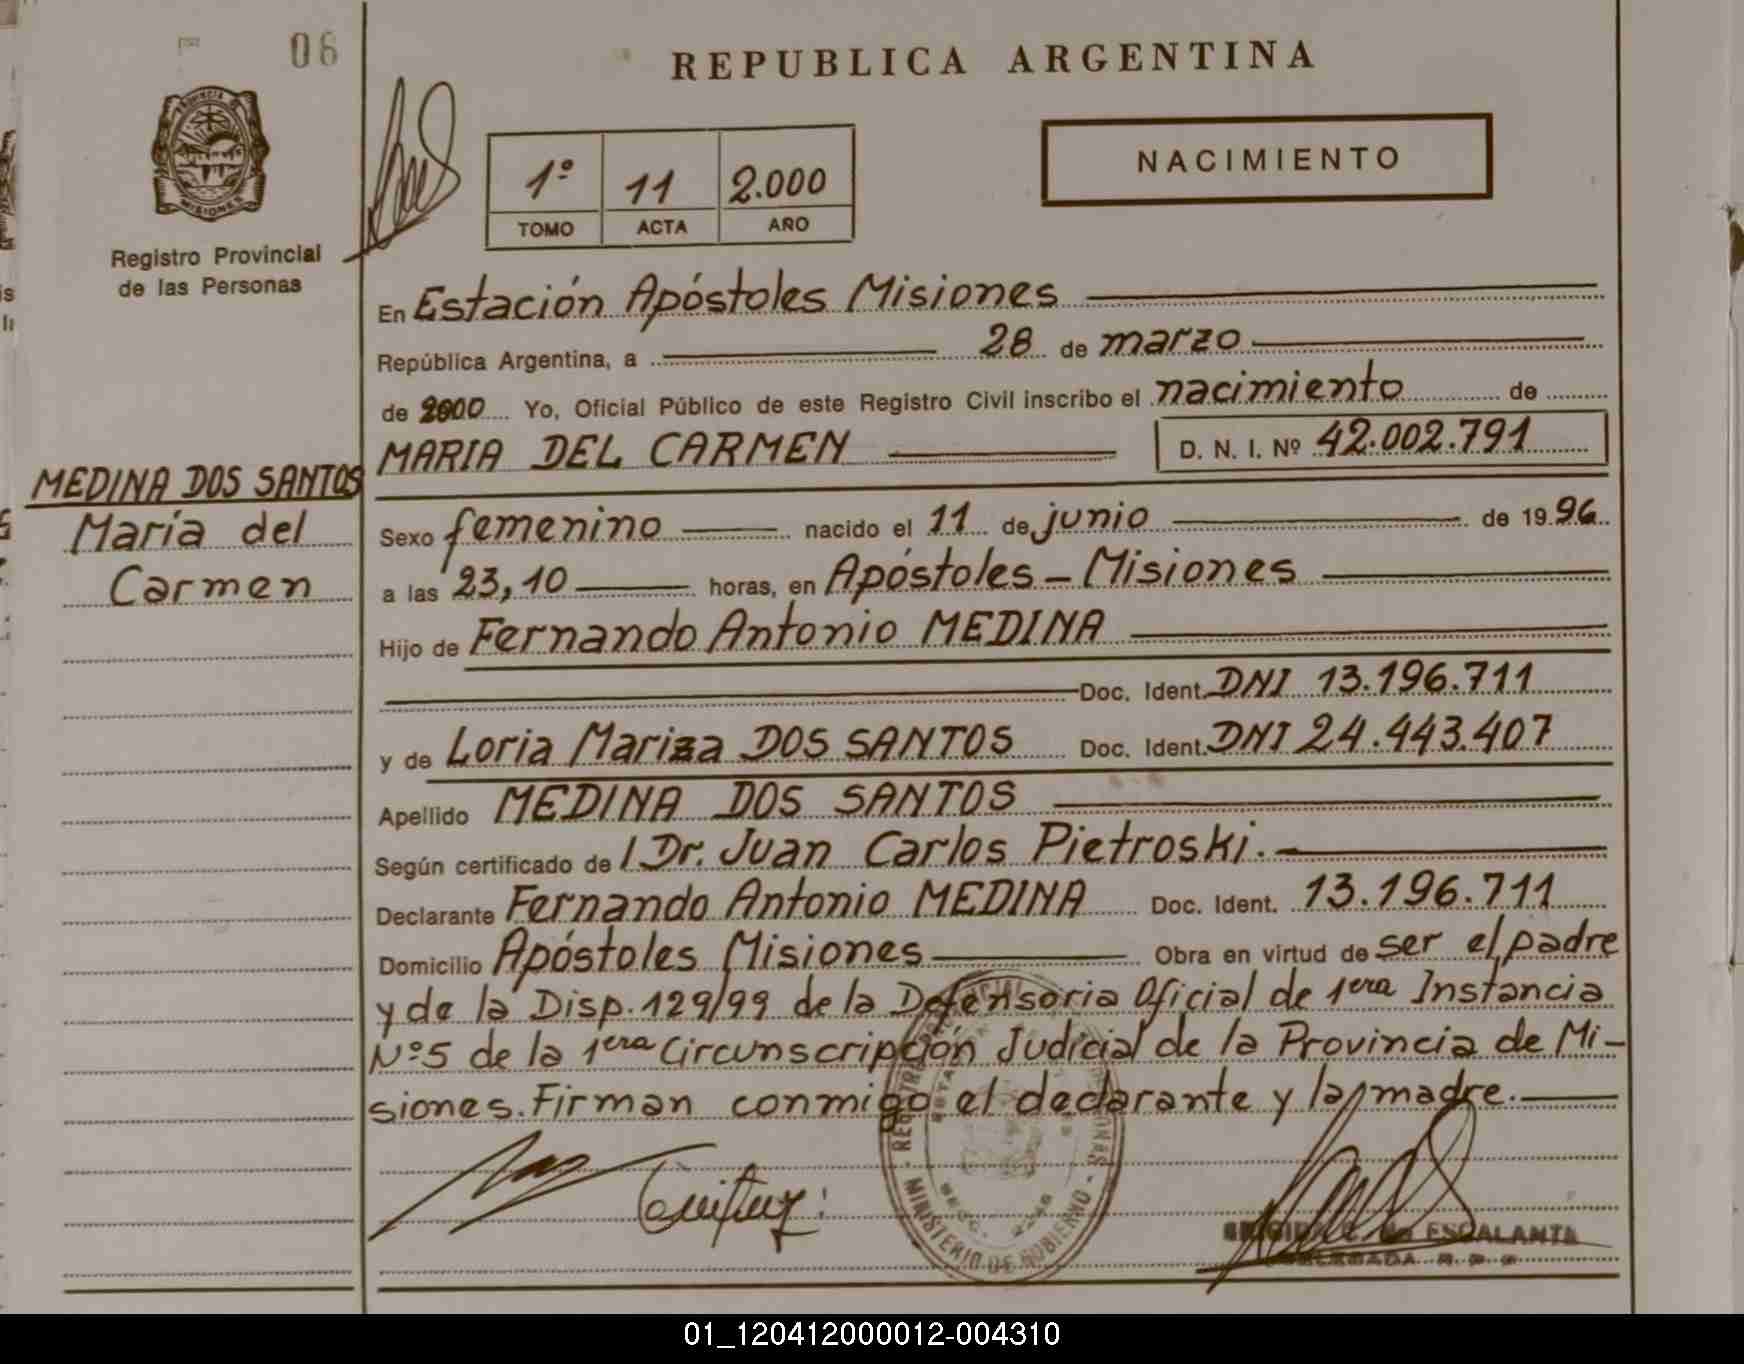 06
REPUBLICA ARGENTINA
PROVINCIA DE
MISIONES
Registro Provincial
de las Personas
1º 11 2.000
TOMO ACTA AÑO
NACIMIENTO
En Estación Apóstoles Misiones
República Argentina, a 28 de marzo
de 2000 Yo, Oficial Público de este Registro Civil inscribo el nacimiento de
MARIA DEL CARMEN D. N. I. Nº 42.002.791
MEDINA DOS SANTOS
María del
Carmen
Sexo femenino nacido el 11 de junio de 1996
a las 23,10 horas, en Apóstoles - Misiones
Hijo de Fernando Antonio MEDINA
Doc. Ident. DNI 13.196.711
y de Loria Mariza DOS SANTOS Doc. Ident. DNI 24.443.407
Apellido MEDINA DOS SANTOS
Según certificado de l Dr. Juan Carlos Pietroski.
Declarante Fernando Antonio MEDINA Doc. Ident. 13.196.711
Domicilio Apóstoles Misiones Obra en virtud de ser el padre
y de la Disp. 129/99 de la Defensoria Oficial de 1era Instancia
Nº5 de la 1era Circunscripción Judicial de la Provincia de Mi-
siones. Firman conmigo el declarante y la madre.
MINISTERIO DE GOBIERNO
de ESCALANTE
01_120412000012-004310